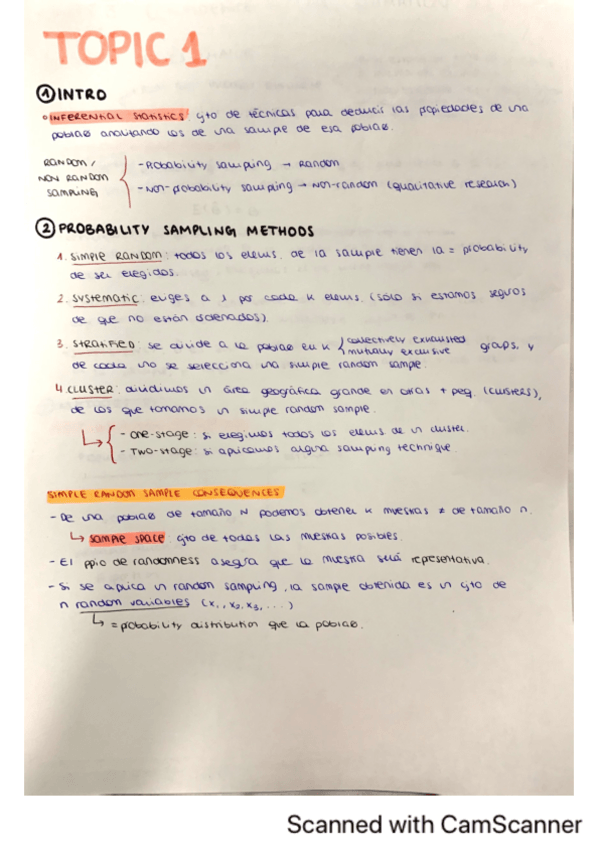 TOPIC 1
① INTRO
INFERENTIAL STATISTICS: cjto de técnicas para deducir las propiedades de una
poblac analizando los de una sample de esa poblac.
RANDOM /
NON RANDOM
SAMPLING
- Probability sampling → Random
- Non-probability sampling → Non-random (qualitative research)
② PROBABILITY SAMPLING METHODS
1. SIMPLE RANDOM: todos los elems. de la sample tienen la = probability
de ser elegidos.
2. SYSTEMATIC: eliges a 1 por cada K elems. (sólo si estamos seguros
de que no están ordenados).
3. STRATIFIED: se divide a la poblac en K { collectively exhausted
mutually exclusive groups, y
de cada uno se selecciona una simple random sample.
4. CLUSTER: dividimos un área geográfica grande en otras + peq. (clusters),
de los que tomamos un simple random sample.
↳ { - ONE-STAGE: si elegimos todos los elems de un cluster.
- TWO-STAGE: si aplicamos alguna sampling technique.
SIMPLE RANDOM SAMPLE CONSEQUENCES
- De una poblac de tamaño N podemos obtener K muestras ≠ de tamaño n.
↳ SAMPLE SPACE: cjto de todas las muestras posibles.
- El ppio de randomness asegura que la muestra será representativa.
- Si se aplica un random sampling, la sample obtenida es un cjto de
n random variables (x₁, x₂, x₃, ...)
↳ = probability distribution que la poblac.
Scanned with CamScanner